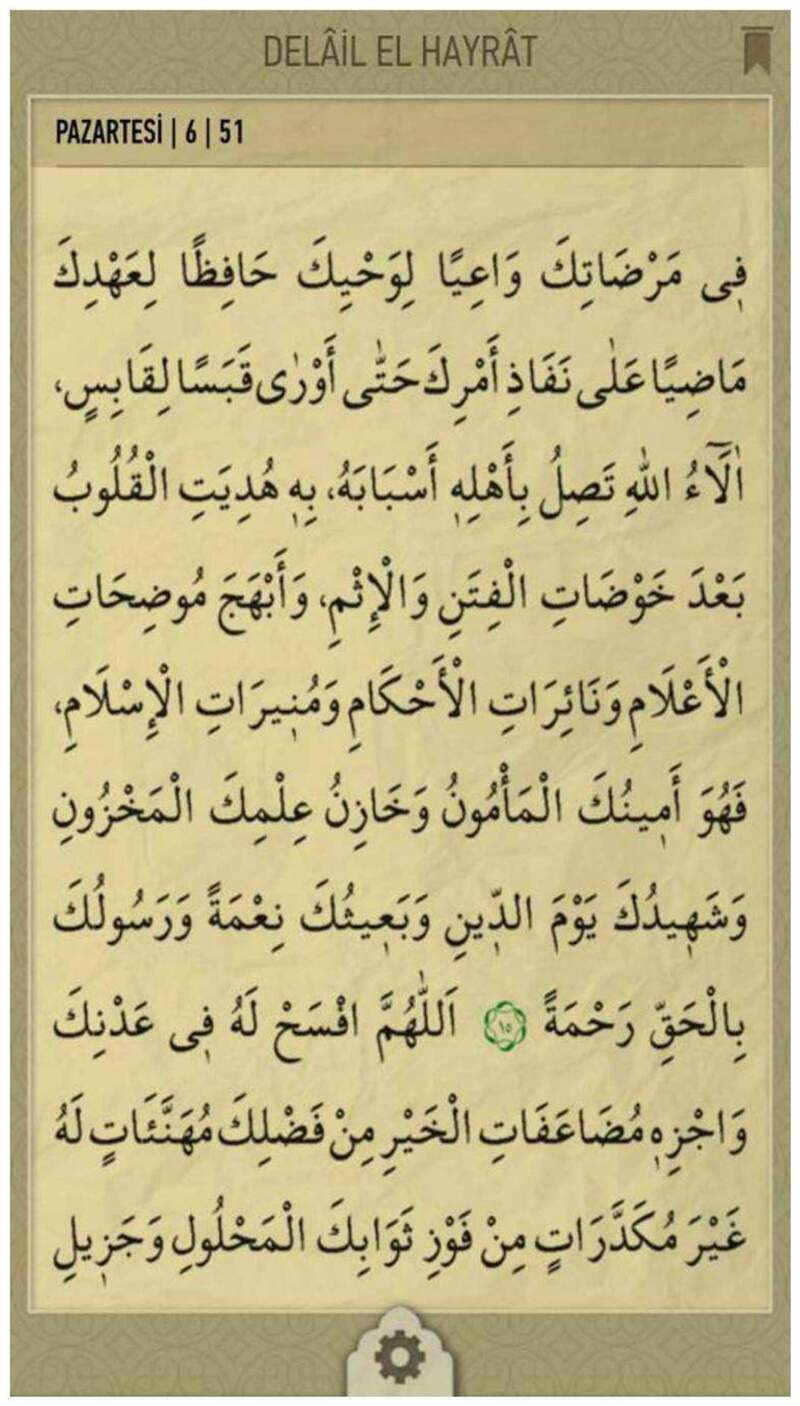 DELÂİL EL HAYRÂT
PAZARTESİ | 6 | 51
فِى مَرْضَاتِكَ وَاعِيًا لِوَحْيِكَ حَافِظًا لِعَهْدِكَ
مَاضِيًا عَلٰى نَفَاذِ أَمْرِكَ حَتّٰى أَوْرٰى قَبَسًا لِقَابِسٍ،
اٰلَآءُ اللهِ تَصِلُ بِأَهْلِهٖ أَسْبَابَهُ، بِهٖ هُدِيَتِ الْقُلُوبُ
بَعْدَ خَوْضَاتِ الْفِتَنِ وَالْإِثْمِ، وَأَبْهَجَ مُوضِحَاتِ
الْأَعْلَامِ وَنَائِرَاتِ الْأَحْكَامِ وَمُنِيرَاتِ الْإِسْلَامِ،
فَهُوَ أَمِينُكَ الْمَأْمُونُ وَخَازِنُ عِلْمِكَ الْمَخْزُونِ
وَشَهِيدُكَ يَوْمَ الدِّينِ وَبَعِيثُكَ نِعْمَةً وَرَسُولُكَ
بِالْحَقِّ رَحْمَةً ١٥ اَللّٰهُمَّ افْسَحْ لَهُ فِى عَدْنِكَ
وَاجْزِهٖ مُضَاعَفَاتِ الْخَيْرِ مِنْ فَضْلِكَ مُهَنَّئَاتٍ لَهُ
غَيْرَ مُكَدَّرَاتٍ مِنْ فَوْزِ ثَوَابِكَ الْمَحْلُولِ وَجَزِيلِ